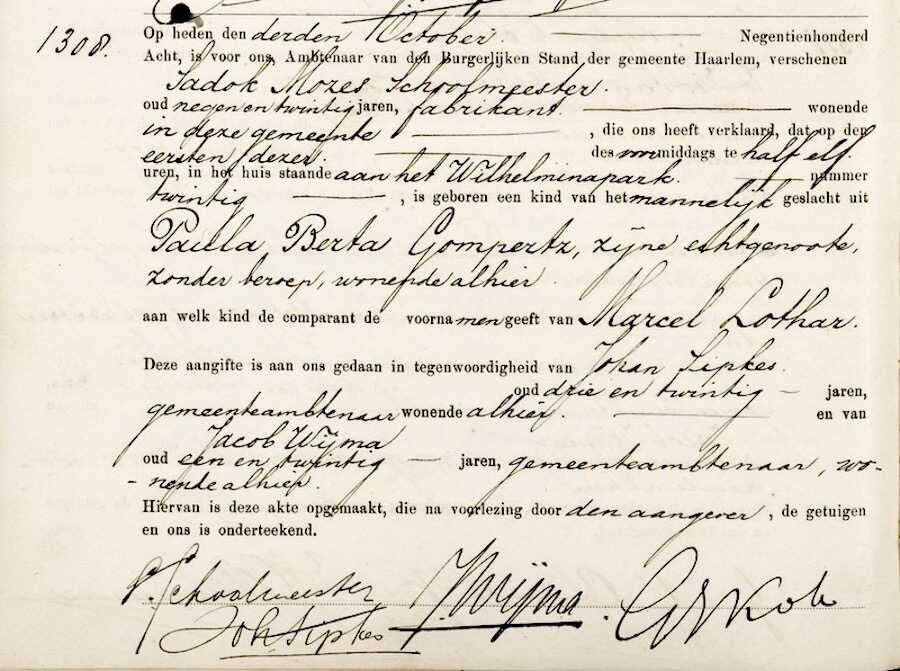 1308.
Op heden den derden October Negentienhonderd
Acht, is voor ons, Ambtenaar van den Burgerlijken Stand der gemeente Haarlem, verschenen
Sadok Mozes Schoolmeester.
oud negen en twintig jaren, fabrikant. wonende
in deze gemeente , die ons heeft verklaard, dat op den
eersten dezer. des voormiddags te half elf.
uren, in het huis staande aan het Wilhelminapark. nummer
twintig , is geboren een kind van het mannelijk geslacht uit
Paula Berta Gompertz, zijne echtgenoote,
zonder beroep, wonende alhier.
aan welk kind de comparant de voornamen geeft van Marcel Lothar.
Deze aangifte is aan ons gedaan in tegenwoordigheid van Johan Sipkes.
oud drie en twintig – jaren,
gemeenteambtenaar wonende alhier. en van
Jacob Wijma
oud een en twintig – jaren, gemeenteambtenaar, wo-
-nende alhier.
Hiervan is deze akte opgemaakt, die na voorlezing door den aangever, de getuigen
en ons is onderteekend.
S. Schoolmeester J. Wijma.
Joh Sipkes